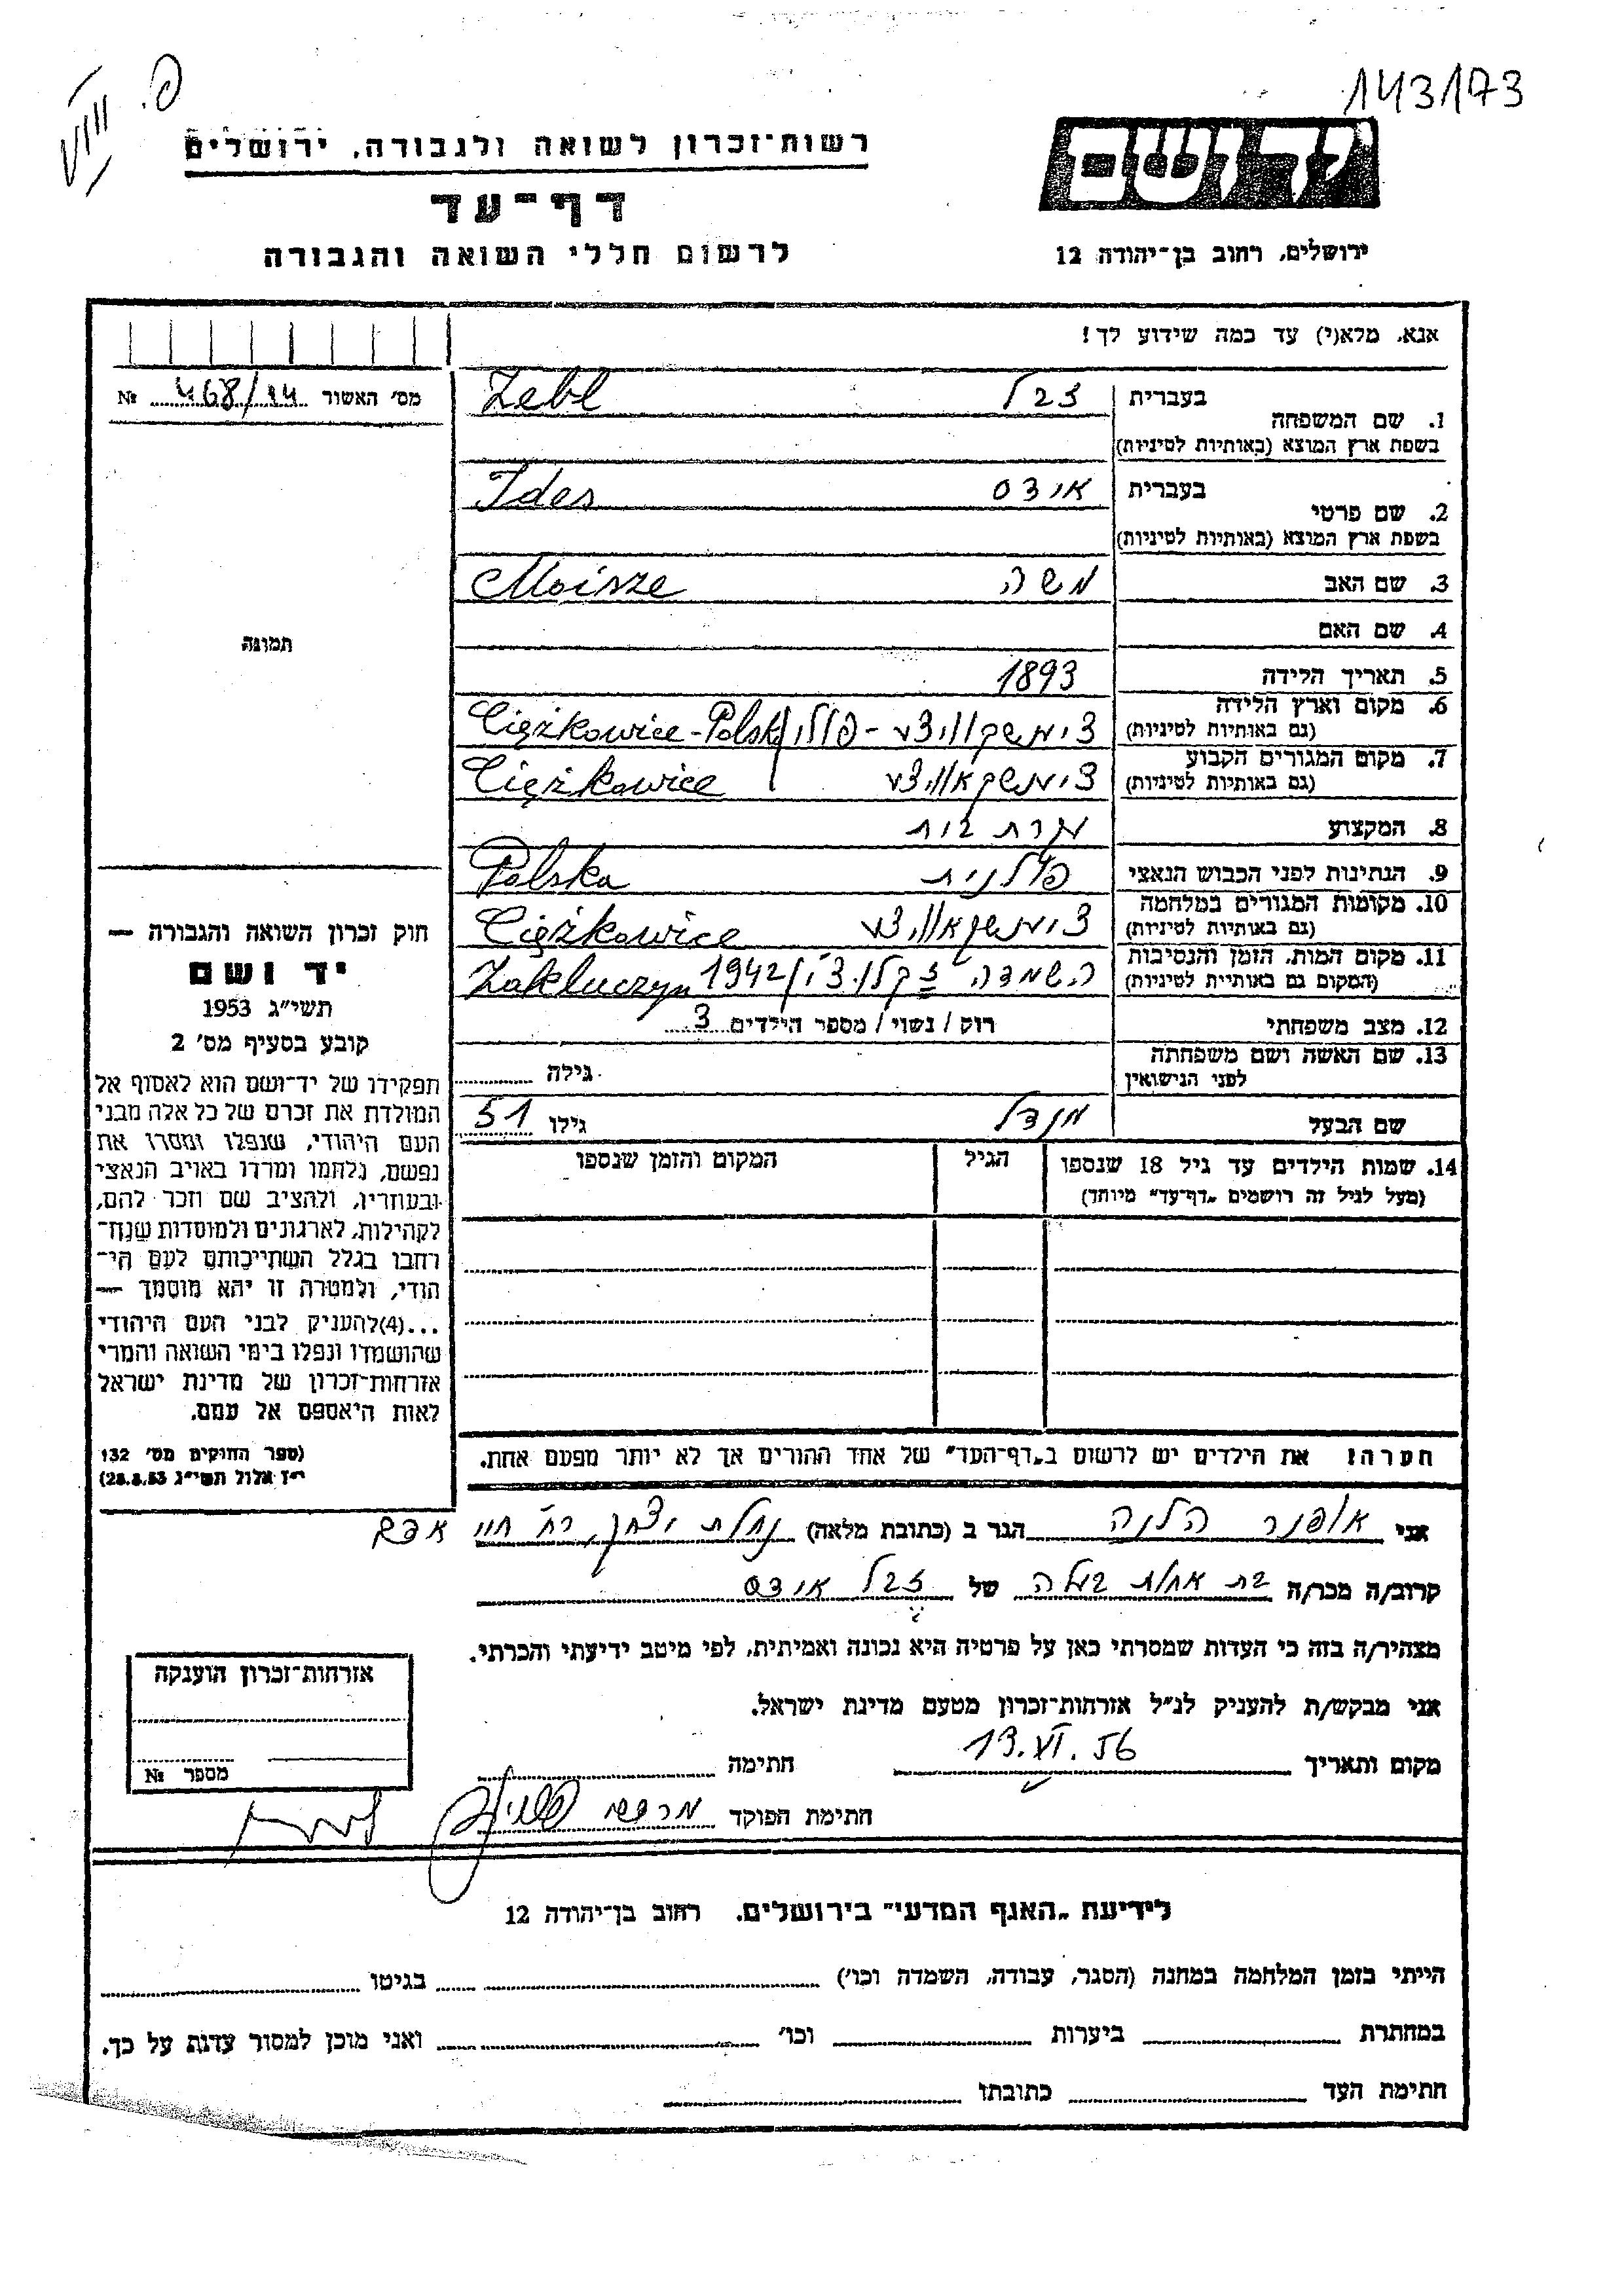 143173
פ.
רשות־זכרון לשואה ולגבורה, ירושלים
דף־עד
לרשום חללי השואה והגבורה
יד ושם
ירושלים, רחוב בן־יהודה 12
אנא, מלא(י) עד כמה שידוע לך!
מס' האשור 468/14 №
1. שם המשפחה בעברית זבל Zebl
בשפת ארץ המוצא (באותיות לטיניות)
2. שם פרטי בעברית אידס Ides
בשפת ארץ המוצא (באותיות לטיניות)
3. שם האב משה Moisze
4. שם האם
תמונה
5. תאריך הלידה 1893
6. מקום וארץ הלידה (גם באותיות לטיניות) Ciężkowice - Polska
7. מקום המגורים הקבוע (גם באותיות לטיניות) Ciężkowice
8. המקצוע עקרת בית
9. הנתינות לפני הכבוש הנאצי פולנית Polska
10. מקומות המגורים במלחמה (גם באותיות לטיניות) Ciężkowice
11. מקום המות, הזמן והנסיבות (המקום גם באותיית לטיניות) השמדה 1942 Zakluczyn
12. מצב משפחתי רוק / נשוי / מספר הילדים 3
13. שם האשה ושם משפחתה לפני הנישואין גילה
שם הבעל מנדל גילו 51
14. שמות הילדים עד גיל 18 שנספו (מעל לגיל זה רושמים „דף־עד" מיוחד) הגיל המקום והזמן שנספו
חוק זכרון השואה והגבורה —
יד ושם
תשי"ג 1953
קובע בסעיף מס' 2
תפקידו של יד־ושם הוא לאסוף אל
המולדת את זכרם של כל אלה מבני
העם היהודי, שנפלו ומסרו את
נפשם, נלחמו ומרדו באויב הנאצי
ובעוזריו, ולהציב שם וזכר להם,
לקהילות, לארגונים ולמוסדות שנח־
רחבו בגלל השתייכותם לעם הי־
הודי, ולמטרה זו יהא מוסמך —
...(4)להעניק לבני העם היהודי
שהושמדו ונפלו בימי השואה והמרי
אזרחות־זכרון של מדינת ישראל
לאות היאספם אל עמם.
(ספר החוקים מס' 132
י"ז אלול תשי"ג 28.8.53)
הערה! את הילדים יש לרשום ב„דף־העד" של אחד ההורים אך לא יותר מפעם אחת.
אני אופנר הלנה הגר ב (כתובת מלאה) נחלת יצחק, רח'
קרוב/ה מכר/ה בת אחות בעלה של זבל אידס
מצהיר/ה בזה כי העדות שמסרתי כאן על פרטיה היא נכונה ואמיתית, לפי מיטב ידיעתי והכרתי.
אני מבקש/ת להעניק לנ"ל אזרחות־זכרון מטעם מדינת ישראל.
מקום ותאריך 13.VI.56 חתימה
חתימת הפוקד
אזרחות־זכרון הוענקה
מספר №
לידיעת „האגף המדעי" בירושלים, רחוב בן־יהודה 12
הייתי בזמן המלחמה במחנה (הסגר, עבודה, השמדה וכו') בגיטו
במחתרת ביערות וכו' ואני מוכן למסור עדות על כך.
חתימת העד כתובתו